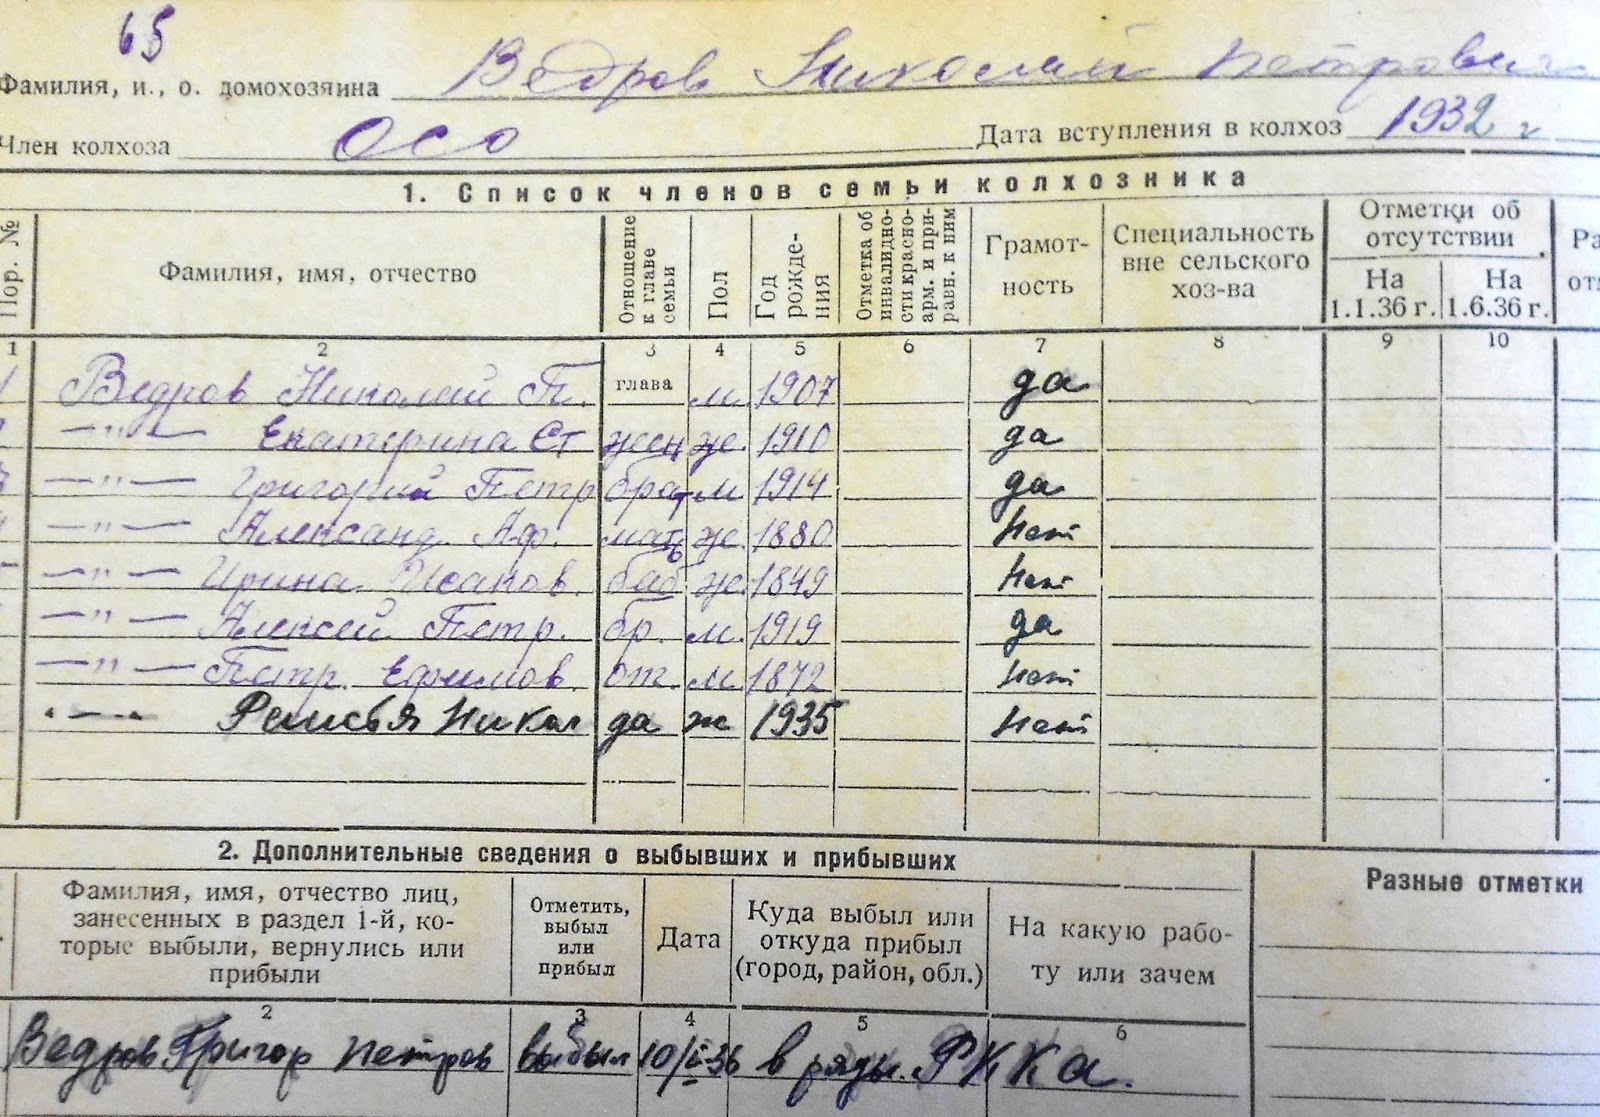 65
Фамилия, и., о. домохозяина Ведров Николай Петрович
Член колхоза ОСО Дата вступления в колхоз 1932 г
1. Список членов семьи колхозника
Пор. № Фамилия, имя, отчество Отношение к главе семьи Пол Год рожде-ния Отметка об инвалидно-сти красно-арм. и при-равн. к ним Грамот-ность Специальность вне сельского хоз-ва Отметки об отсутствии На 1.1.36 г. На 1.6.36 г.
1 2 3 4 5 6 7 8 9 10
1 Ведров Николай П. глава м 1907 да
—"— Екатерина Ст жен ж. 1910 да
—"— Григорий Петр брат м 1914 да
—"— Александ. Аф. мать ж. 1880 нет
—"— Ирина Исаков. баб ж. 1849 нет
—"— Алексей Петр. бр. м. 1919 да
—"— Петр. Ефимов. от. м. 1872 нет
Никол да ж 1935 нет
2. Дополнительные сведения о выбывших и прибывших
Разные отметки
Фамилия, имя, отчество лиц, занесенных в раздел 1-й, ко-торые выбыли, вернулись или прибыли Отметить, выбыл или прибыл Дата Куда выбыл или откуда прибыл (город, район, обл.) На какую рабо-ту или зачем
2 3 4 5 6
Ведров Григор Петров выбыл 36 в ряды РККа.